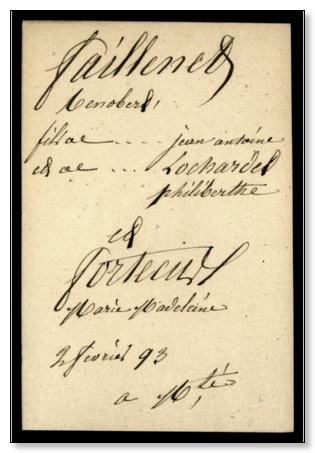 Taillenet
Renobert,
fils de .... jean antoine
et de ... Lochardet
philiberthe
et
Marie Madeleine
2 fevrier 93
a M,té